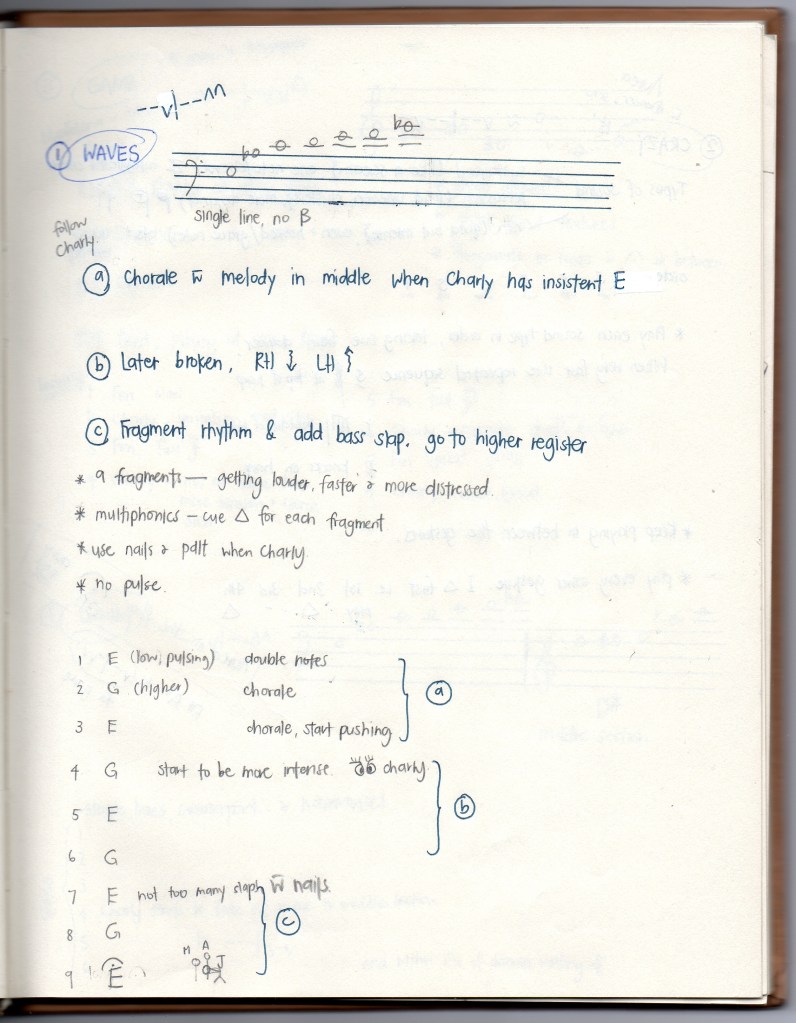 ① WAVES
single line, no B
follow
Charly.
ⓐ Chorale w̄ melody in middle when Charly has insistent E
ⓑ Later broken, RH ↓ LH ↑
ⓒ Fragment rhythm & add bass slap. go to higher register
* 9 fragments — getting louder, faster & more distressed.
* multiphonics – cue △ for each fragment
* use nails & palt when Charly.
* no pulse.
1 E (low, pulsing) double notes
2 G (higher) chorale ⓐ
3 E chorale, start pushing
4 G start to be more intense. charly.
5 E ⓑ
6 G
7 E not too many slaph w̄ nails.
8 G ⓒ
M A J
9 E